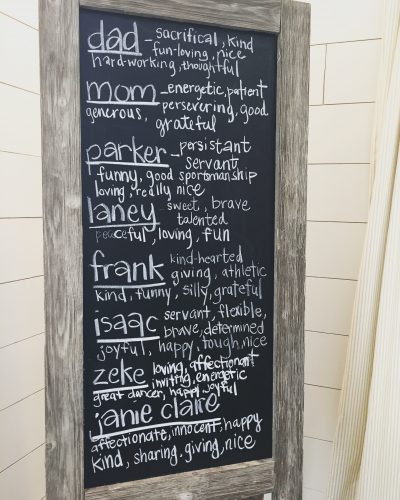 dad - sacrifical, kind
fun-loving, nice
hard-working, thoughtful
mom - energetic, patient
generous, persevering, good
grateful
parker - persistant
servant,
funny, good sportsmanship
loving, really nice
laney sweet, brave
talented
peaceful, loving, fun
frank kind-hearted
giving, athletic
kind, funny, silly, grateful
isaac servant, flexible,
brave, determined
joyful, happy, tough, nice
zeke loving, affectionant
inviting, energetic
great dancer, happy, joyful
janie claire
affectionate, innocent, happy
kind, sharing, giving, nice